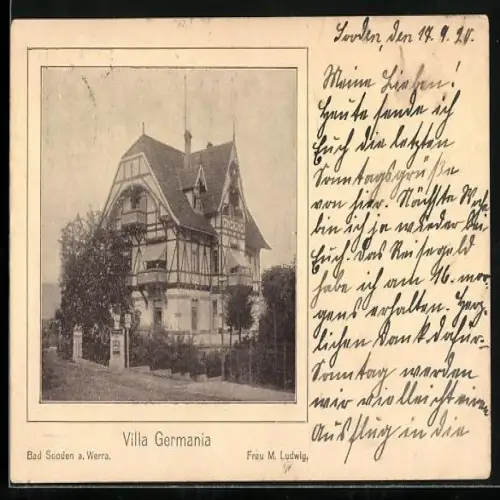 Sooden, den 17.9.20.
Meine Lieben!
Heute sende ich
Euch die letzten
Sonntagsgrüße
von hier. Nächste Woche
bin ich ja wieder bei
Euch. Das Reisegeld
habe ich am 16. mor-
gens erhalten. Herz-
lichen Dank dafür.
Sonntag werden
wir vielleicht einen
Ausflug in die
Villa Germania
Bad Sooden a. Werra. Frau M. Ludwig,